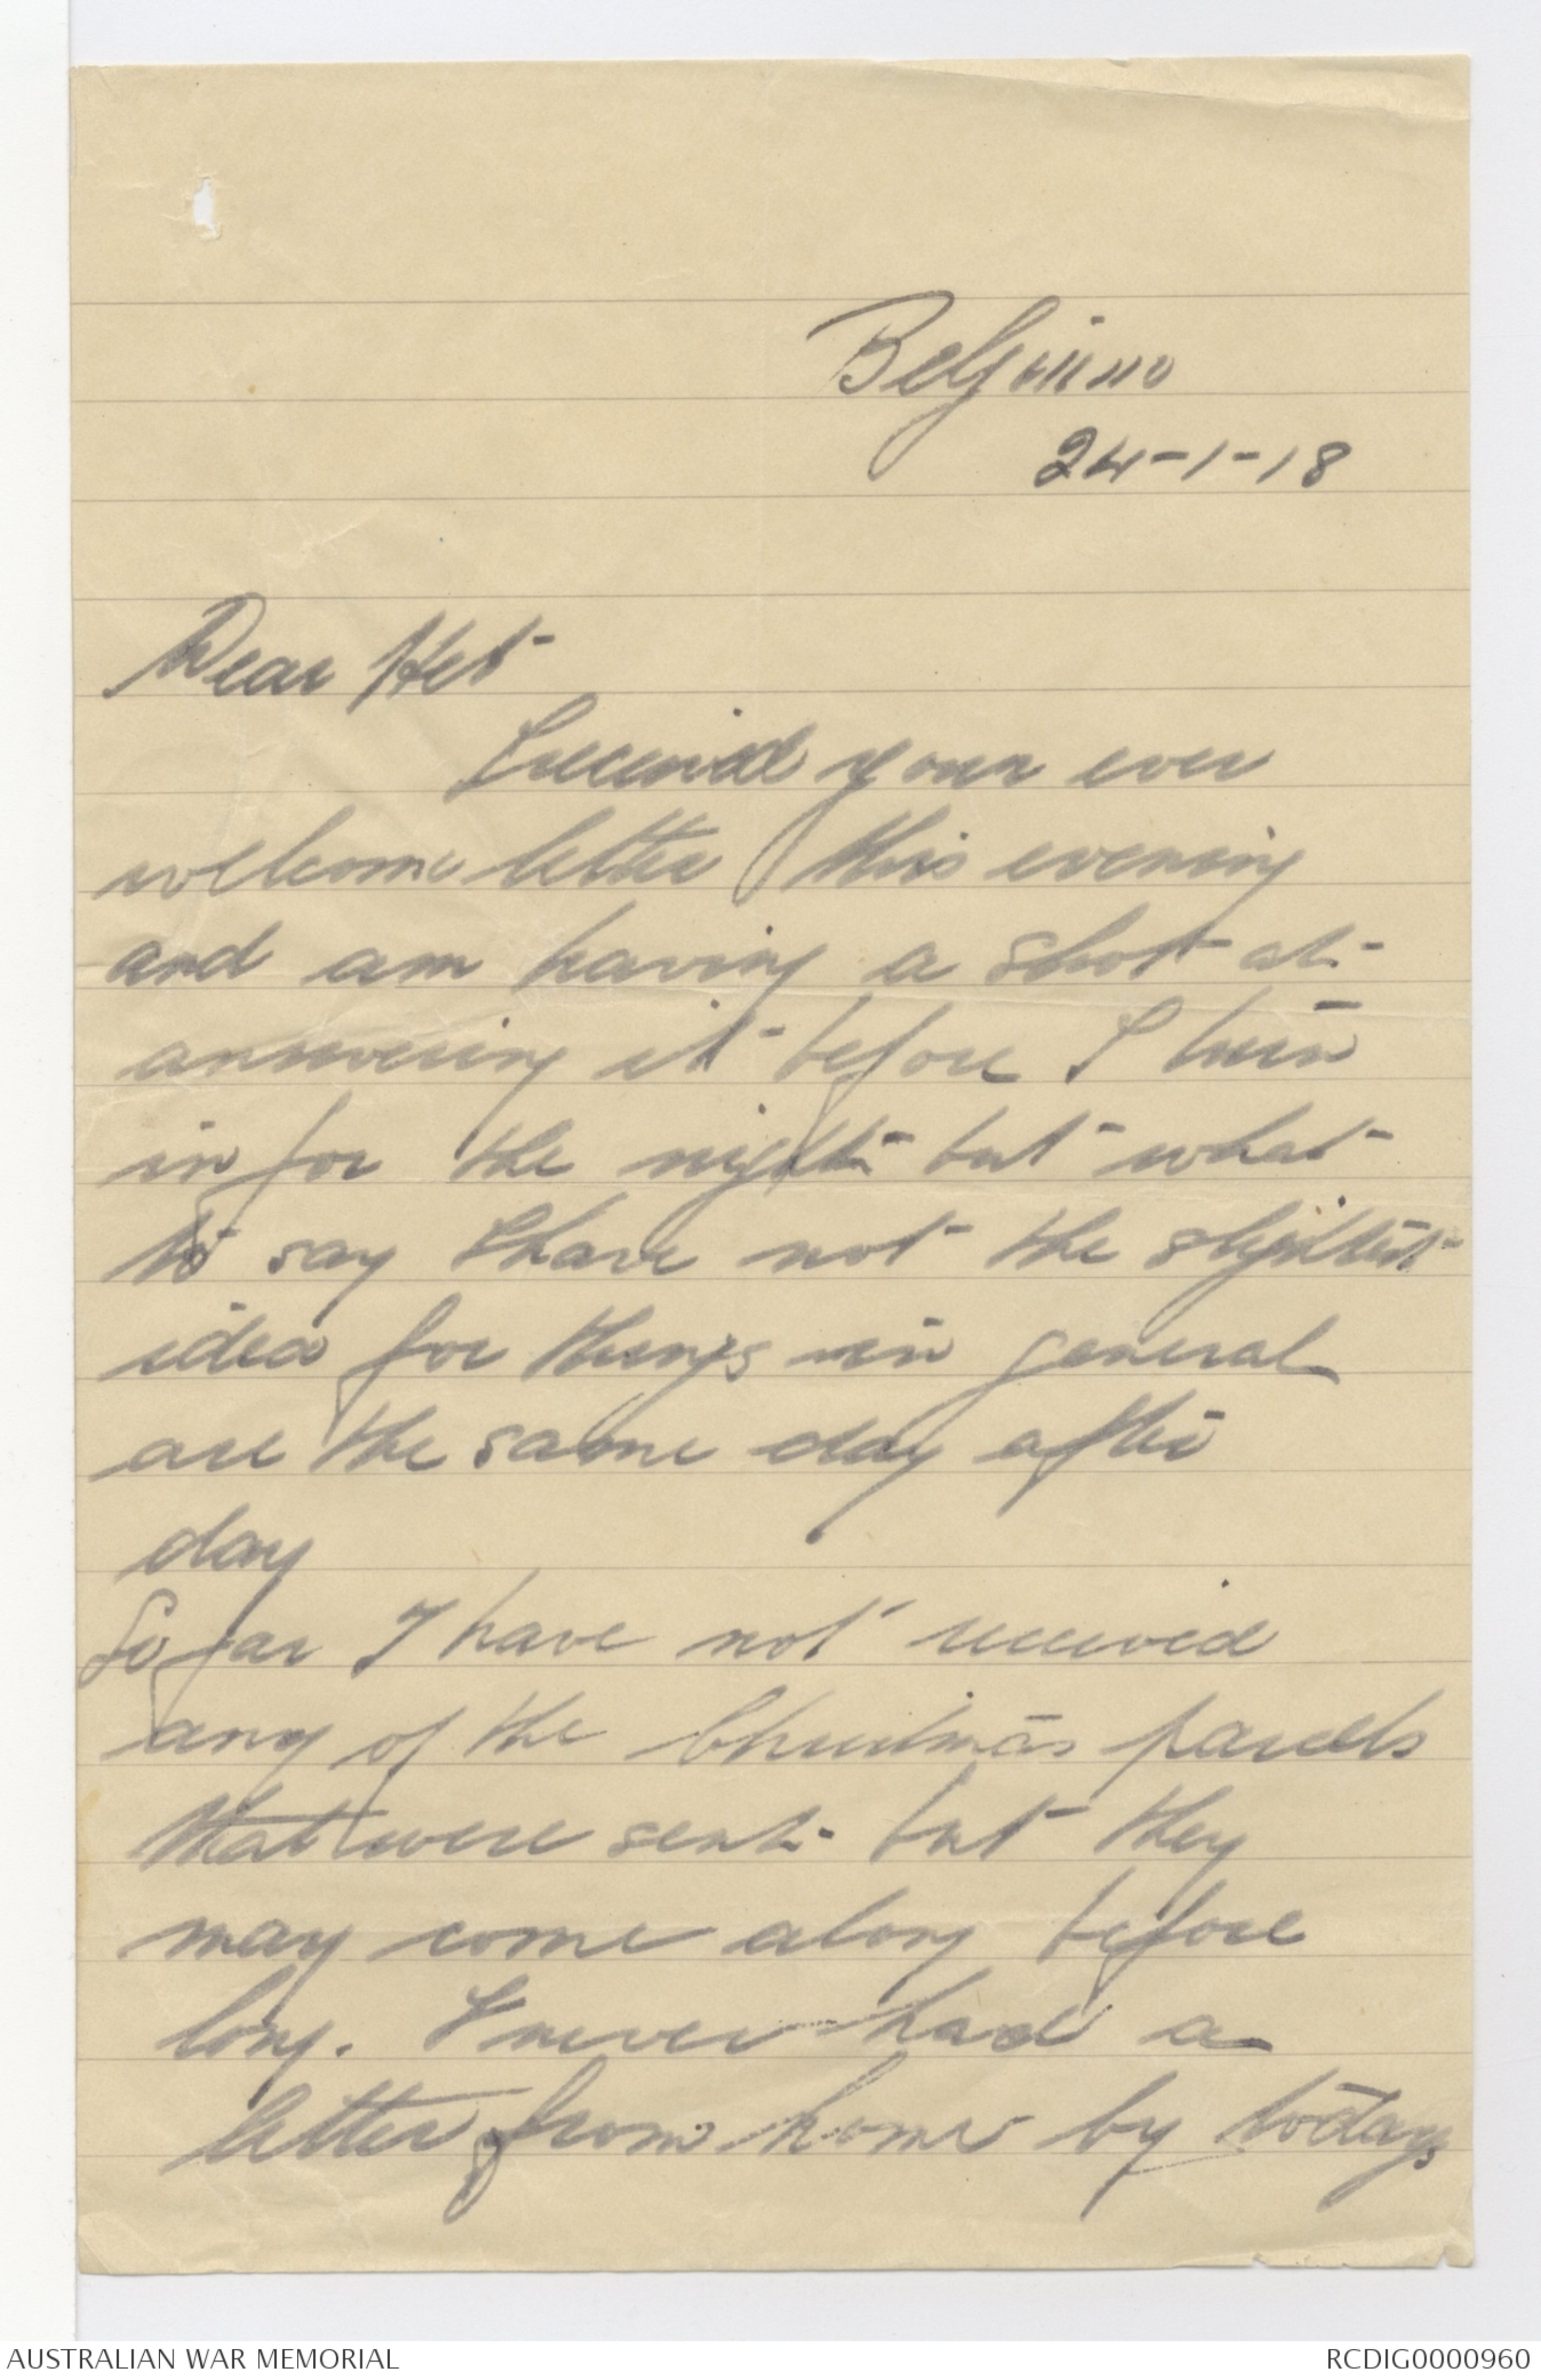 Belgium
24-1-18
Dear Het
I received your ever
welcome letter this evening
and am having a shot at
answering it before I turn
in for the night but what
to say I have not the slightest
idea for things in general
are the same day after
day
So far I have not received
any of the Christmas parcels
that were sent but they
may come along before
long. I never had a
letter from home by todays
AUSTRALIAN WAR MEMORIAL
RCDIG0000960